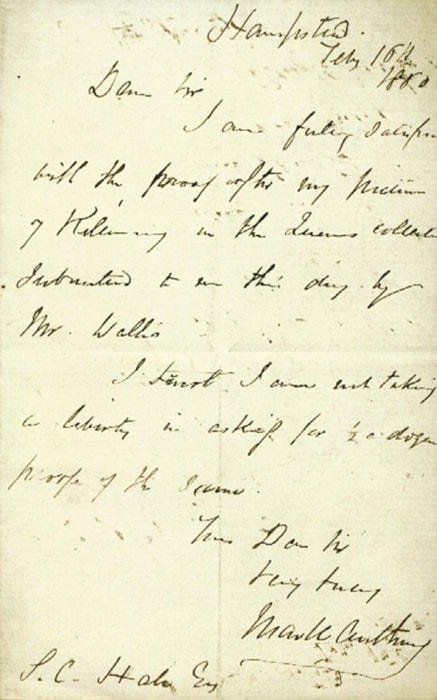 Hampstead.
Feby 16th
1860
Dear Sir
I am fully satisfied
with the proof after my picture
of Killarney in the Queens collection
submitted to me this day by
Mr. Wallis
I trust I am not taking
a liberty in asking for ½ a dozen
proofs of the same.
Yours Dear Sir
Very truly
Mark Anthony
S. C. Hall Esq